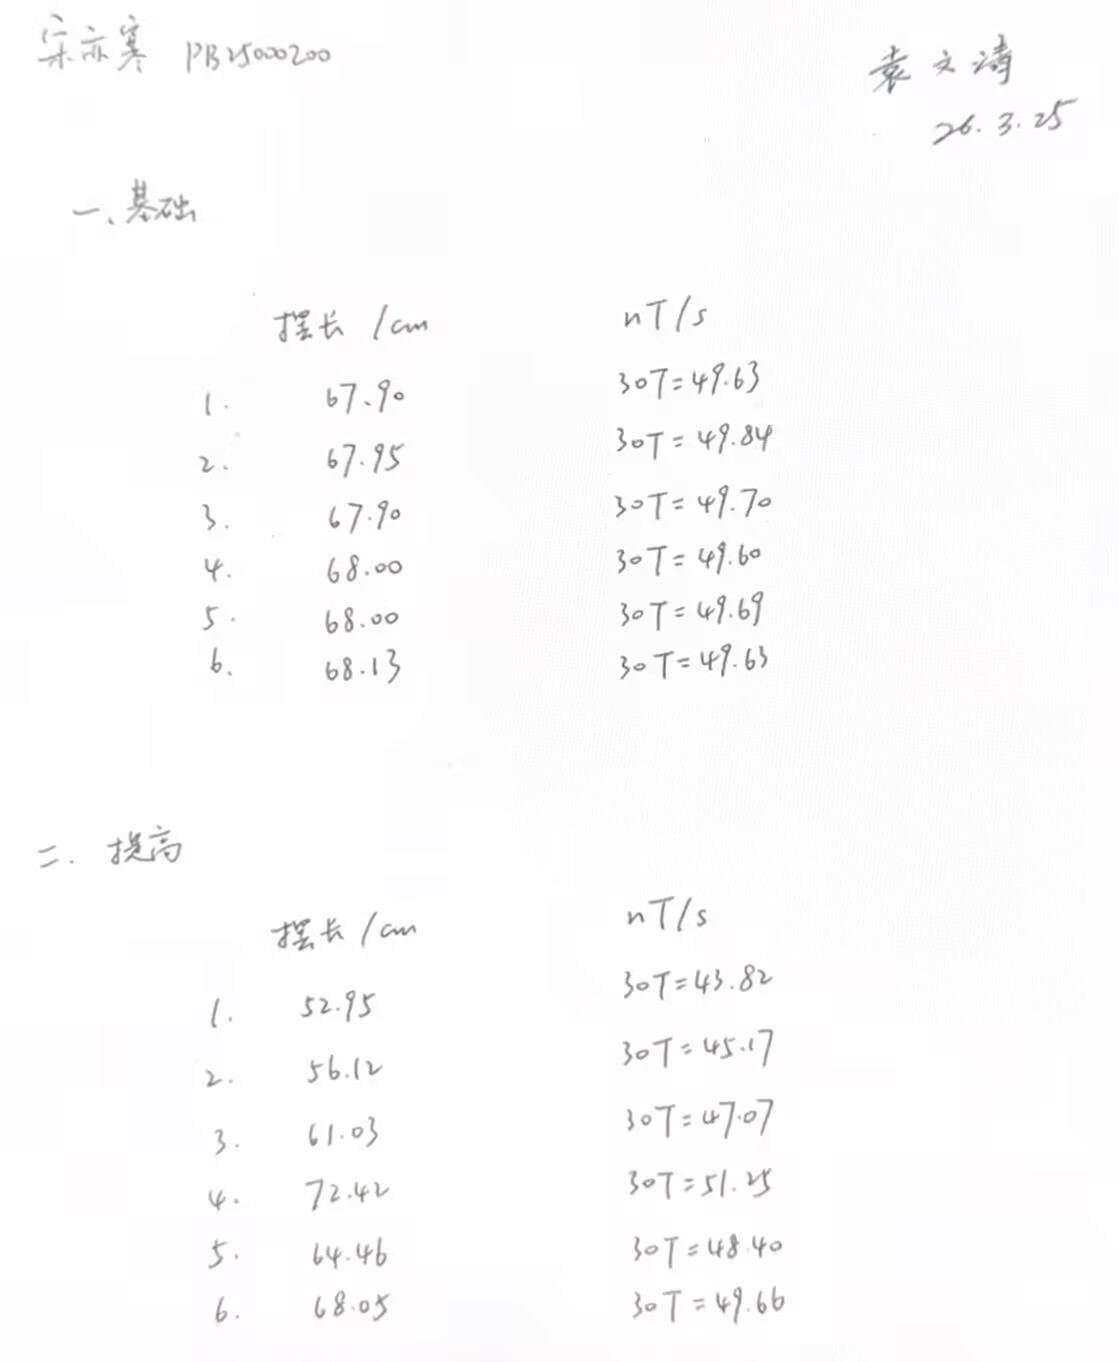 宋亦寒 PB25000200
袁文涛
26.3.25
一、基础
摆长/cm nT/s
1. 67.90 30T=49.63
2. 67.95 30T=49.84
3. 67.90 30T=49.70
4. 68.00 30T=49.60
5. 68.00 30T=49.69
6. 68.13 30T=49.63
二. 提高
摆长/cm nT/s
1. 52.95 30T=43.82
2. 56.12 30T=45.17
3. 61.03 30T=47.07
4. 72.42 30T=51.25
5. 64.46 30T=48.40
6. 68.05 30T=49.66